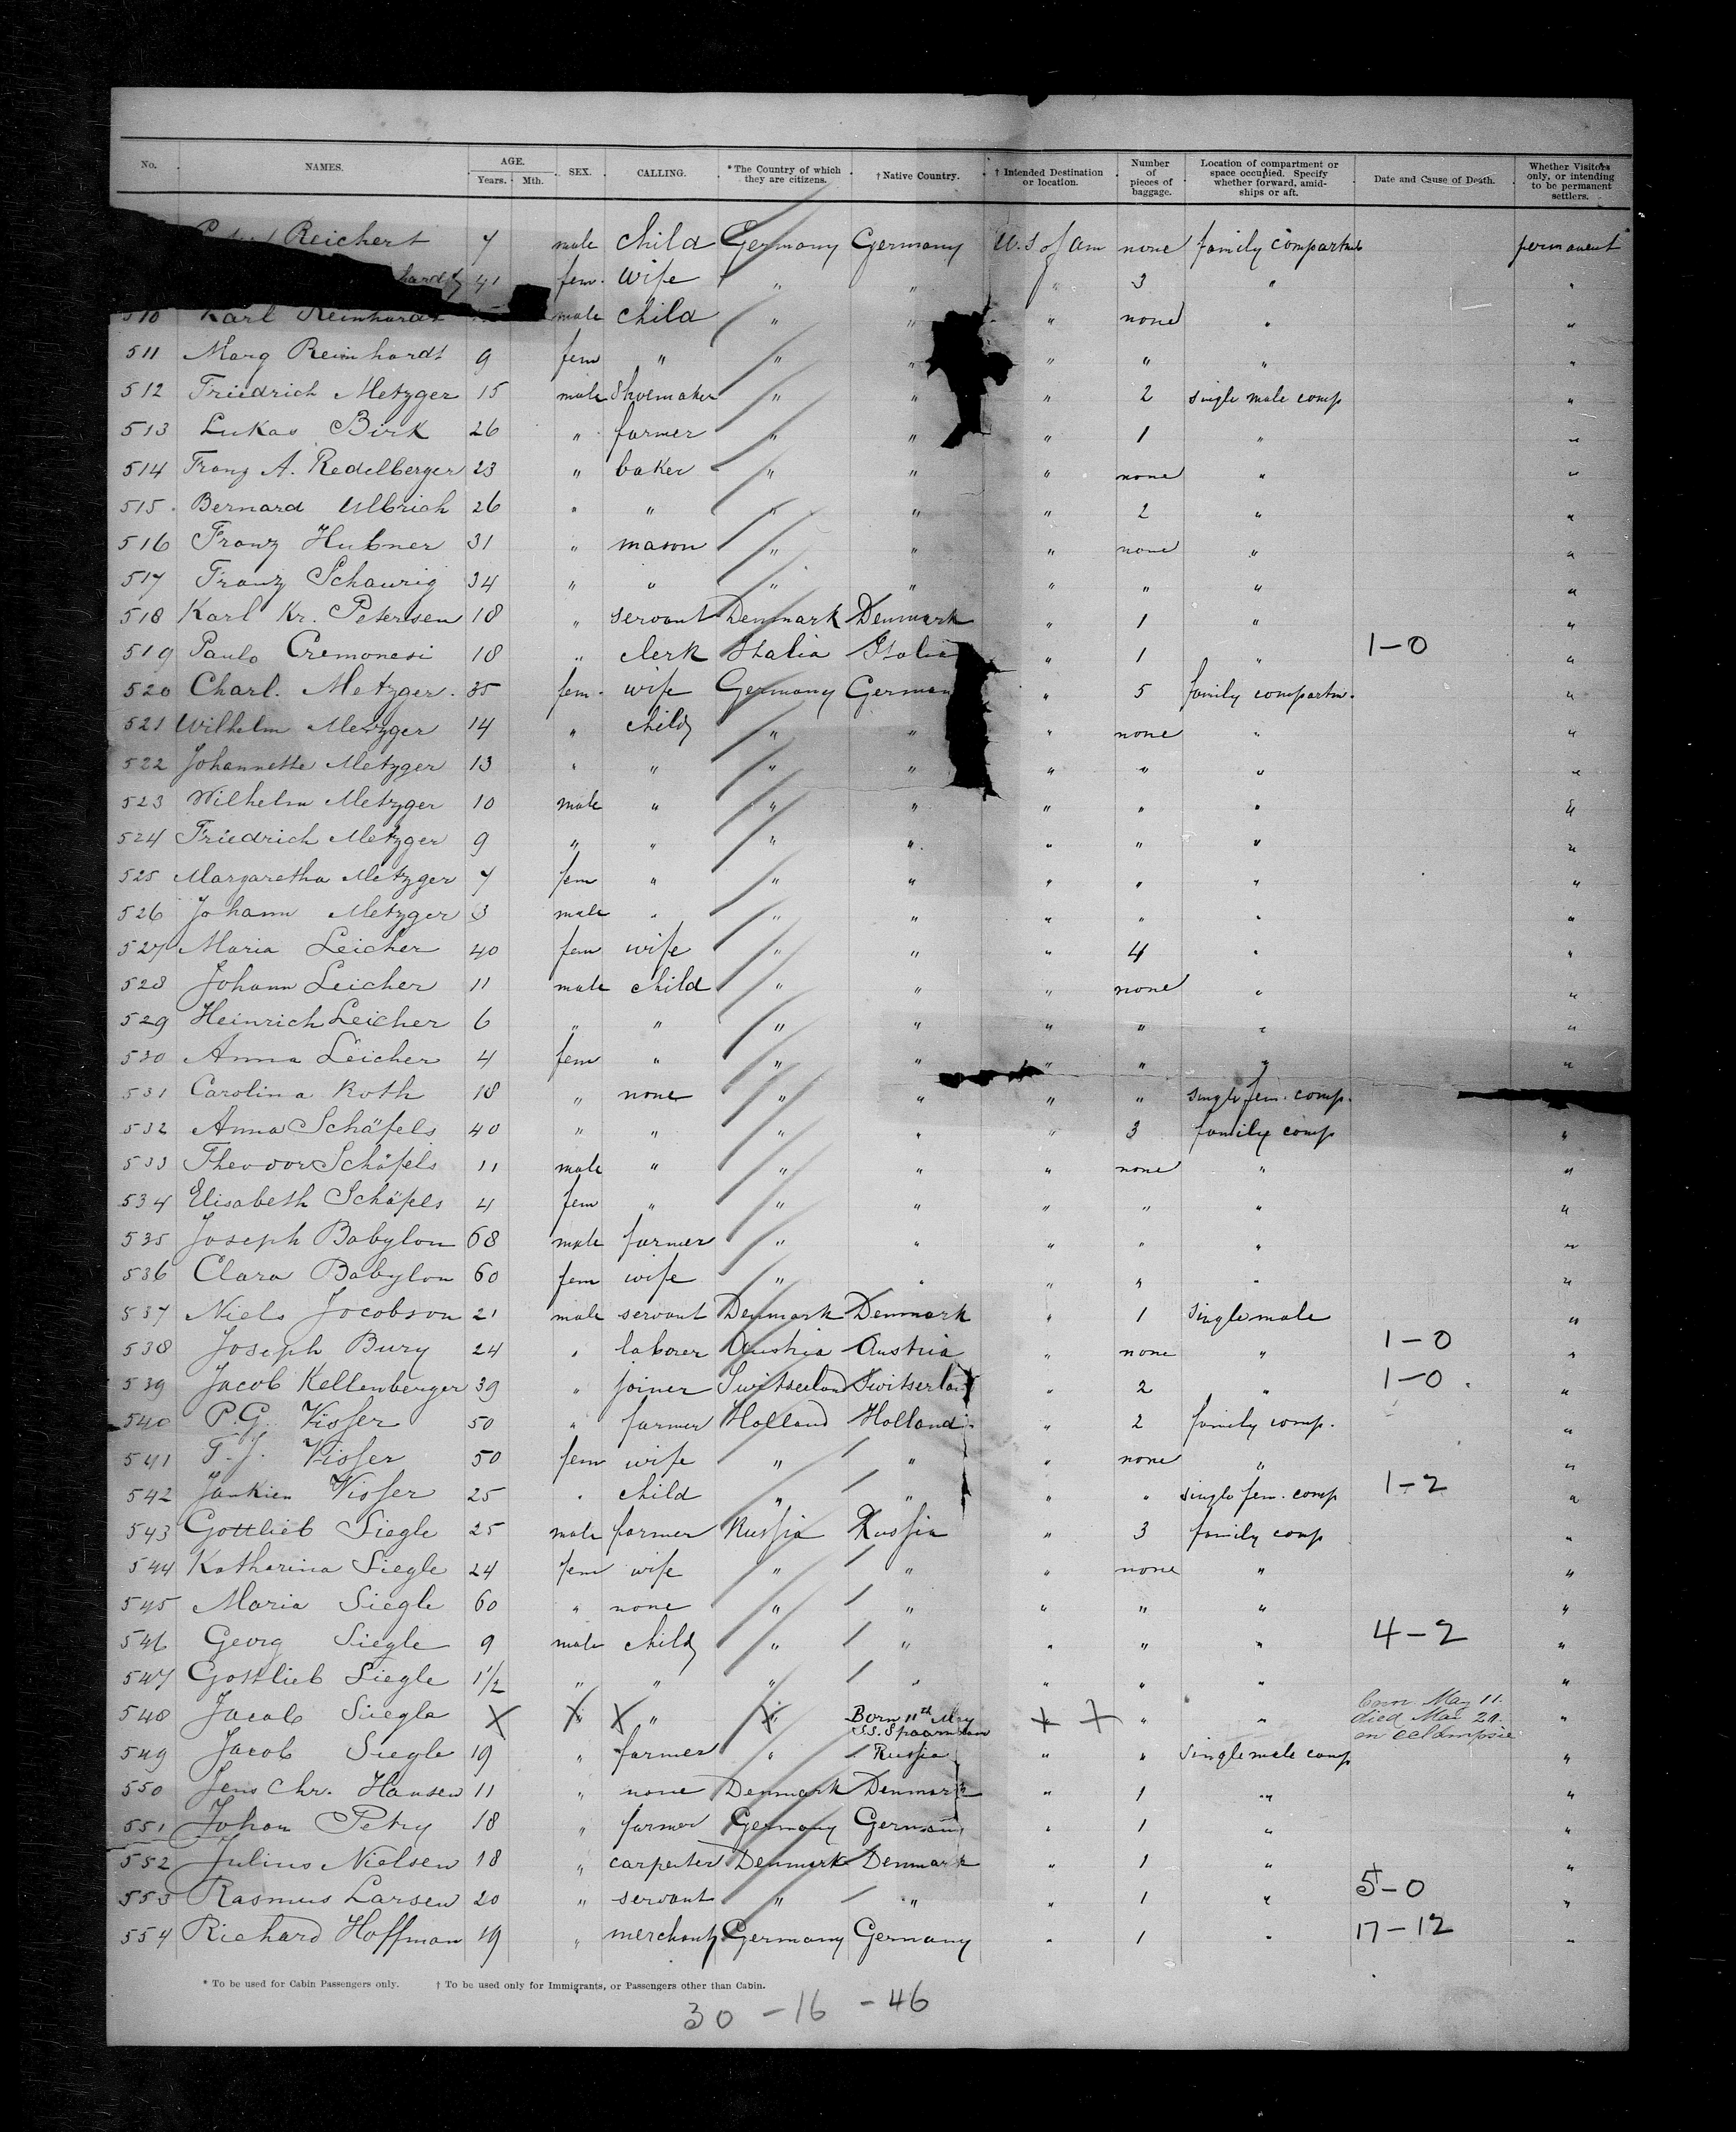 No. NAMES. AGE. Years. Mth. SEX. CALLING. *The Country of which they are citizens. †Native Country. †Intended Destination or location. Number of pieces of baggage. Location of compartment or space occupied. Specify whether forward, amidships or aft. Date and Cause of Death. Whether Visitors only, or intending to be permanent settlers.
Reichert 7 male child Germany Germany U.S of Am none family compartm permanent
41 fem. wife " " " 3 " "
510 Karl Reinhardt male child " " " none " "
511 Marg Reinhardt 9 fem " " " " " " "
512 Friedrich Metzger 15 male Shoemaker " " " 2 single male comp "
513 Lukas Birk 26 " farmer " " " 1 " "
514 Franz A. Redelberger 23 " baker " " " none " "
515. Bernard Ulbrich 26 " " " " " 2 " "
516 Franz Hubner 31 " mason " " " none " "
517 Franz Schaurig 34 " " " " " " " "
518 Karl Kr. Petersen 18 " servant Denmark Denmark " 1 " "
519 Paulo Cremonesi 18 " clerk Italia Italia " 1 " 1-0 "
520 Charl. Metzger. 35 fem. wife Germany German " 5 family compartm. "
521 Wilhelm Metzger 14 " child " " " none " "
522 Johannette Metzger 13 " " " " " " " "
523 Wilhelm Metzger 10 male " " " " " " "
524 Friedrich Metzger 9 " " " " " " " "
525 Margaretha Metzger 7 fem " " " " " " "
526 Johann Metzger 3 male " " " " " " "
527 Maria Leicher 40 fem wife " " " 4 " "
528 Johann Leicher 11 male child " " " none " "
529 Heinrich Leicher 6 " " " " " " " "
530 Anna Leicher 4 fem " " " " " " "
531 Carolina Roth 18 " none " " " " single fem. comp.
532 Anna Schäfels 40 " " " " " 3 family comp "
533 Theodor Schäfels 11 male " " " " none " "
534 Elisabeth Schäfels 4 fem " " " " " " "
535 Joseph Babylon 68 male farmer " " " " " "
536 Clara Babylon 60 fem wife " " " " " "
537 Niels Jocobson 21 male servant Denmark Denmark " 1 single male "
538 Joseph Bury 24 " laborer Austria Austria " none " 1-0 "
539 Jacob Kellenberger 39 " joiner Switserland Switserlan " 2 " 1-0. "
540 P.G. Visser 50 " farmer Holland Holland " 2 family comp. "
541 T.J. Visser 50 fem wife " " " none " "
542 Jankien Visser 25 " child " " " " single fem. comp 1-2 "
543 Gottlieb Siegle 25 male farmer Russia Russia " 3 family comp "
544 Katharina Siegle 24 fem wife " " " none " "
545 Maria Siegle 60 " none " " " " " "
546 Georg Siegle 9 male child " " " " " 4-2 "
547 Gottlieb Siegle 1 1/2 " " " " " " " "
548 Jacob Siegle X X X " X Born 11th May S.S. Spaarndam X X " " born May 11. died Mai 20. "
549 Jacob Siegle 19 " farmer " Russia " " single male comp "
550 Jens Chr. Hansen 11 " none Denmark Denmark " 1 " "
551 Johan Petry 18 " farmer Germany Germany " 1 " "
552 Julius Nielsen 18 " carpenter Denmark Denmark " 1 " "
553 Rasmus Larsen 20 " servant " " " 1 " 5-0 "
554 Richard Hoffman 19 " merchant Germany Germany " 1 " 17-12 "
* To be used for Cabin Passengers only. † To be used only for Immigrants, or Passengers other than Cabin.
30 - 16 - 46